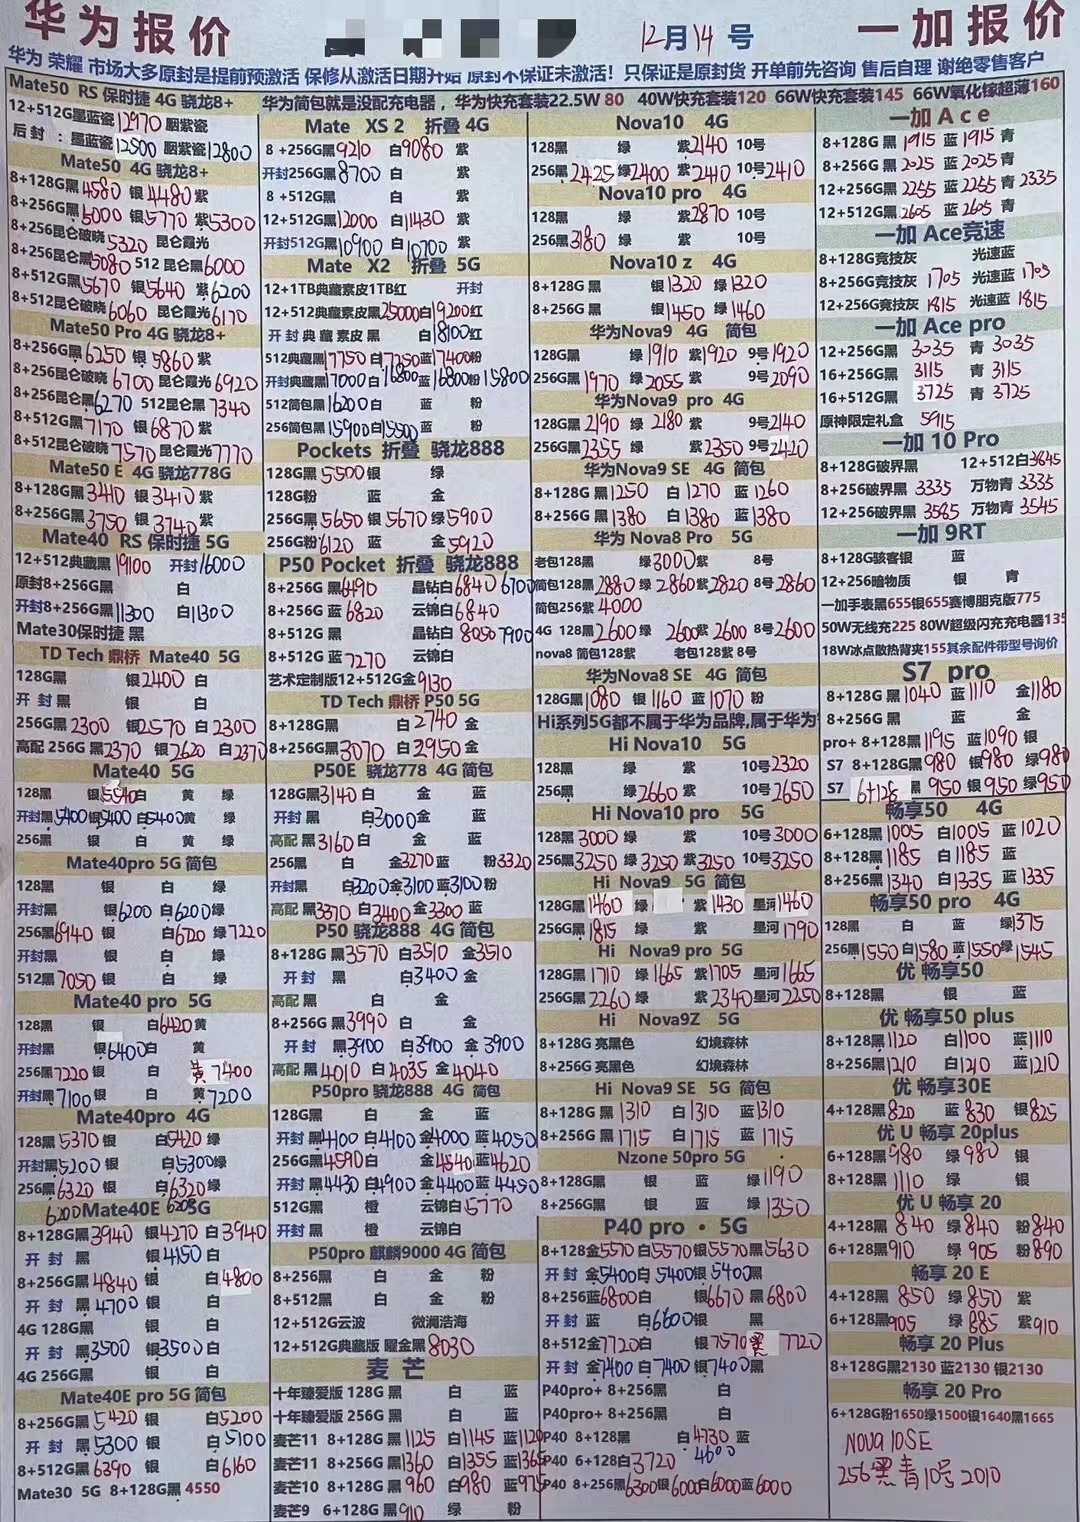 华为报价
12月14号
一加报价
华为 荣耀 市场大多原封是提前预激活 保修从激活日期开始 原封不保证未激活！只保证是原封货 开单前先咨询 售后自理 谢绝零售客户
Mate50 RS 保时捷 4G 骁龙8+
12+512G墨蓝瓷12970 胭紫瓷
后封：墨蓝瓷12500 胭紫瓷12800
Mate50 4G 骁龙8+
8+128G黑4580 银4480紫
8+256G黑5000 银5770 紫5300
8+256昆仑破晓5320 昆仑霞光
8+256昆仑黑5080 512 昆仑黑6000
8+512G黑5670 银5640 紫6200
8+512昆仑破晓6060 昆仑霞光6170
Mate50 Pro 4G 骁龙8+
8+256G黑6250 银5860紫
8+256昆仑破晓6700 昆仑霞光6920
8+256昆仑黑6270 512昆仑黑7340
8+512G黑7170 银6870紫
8+512昆仑破晓7570 昆仑霞光7770
Mate50 E 4G 骁龙778G
8+128G黑3410 银3410紫
8+256G黑3750 银3740紫
Mate40 RS 保时捷 5G
12+512典藏黑19100 开封16000
原封8+256G黑 白
开封8+256G黑11300 白11300
Mate30保时捷 黑
TD Tech 鼎桥 Mate40 5G
128G黑 银2400 白
开封黑 银 白
256G黑2300 银2570 白2300
高配 256G 黑2370 银2620 白2370
Mate40 5G
128黑 银5540白 黄 绿
开封黑5400银5400 白5400黄 绿
256黑 银 白 黄 绿
Mate40pro 5G 简包
128黑 银 白 绿
开封黑 银6200 白6200绿
256黑6940 银 白6720 绿7220
开封黑 银 白 绿
512黑7050 银 白 绿
Mate40 pro 5G
128黑 银 白6420黄
开封黑 银6400白 黄
256黑7220 银 白 黄7400
开封黑7100 银 白 黄7200
Mate40pro 4G
128黑5370 银 白5420 绿
开封黑5200 银 白5300绿
256黑6320 银 白6320绿
6200 Mate40E 5G 6200
8+128G黑3940 银4270 白3940
开封 黑 银4150 白
8+256G黑4840 银 白4800
开封 黑4700 银 白
4G 128G黑 银 白
开封 黑3500 银3500白
4G 256G黑 银 白
Mate40E pro 5G 简包
8+256G黑5420 银 白5200
开封 黑5300 银 白5100
8+512G黑6390 银 白6160
Mate30 5G 8+128G黑 4550
华为简包就是没配充电器，华为快充套装22.5W 80 40W快充套装120 66W快充套装145 66W氧化镓超薄160
Mate XS 2 折叠 4G
8 +256G黑9210 白9080 紫
开封256G黑8700 白 紫
8 +512G黑 白 紫
12+512G黑12000 白11430 紫
开封512G黑10900 白10700 紫
Mate X2 折叠 5G
12+1TB典藏素皮1TB红 开封
12+512典藏素皮黑25000白19200红
开封典藏素皮 黑 白18100红
512典藏黑17750 白17250蓝17400粉
开封典藏黑17000白16800蓝16800粉15800
512简包黑16200白 蓝 粉
256简包黑15900白15500蓝 粉
Pockets 折叠 骁龙888
128G黑5500银 绿
128G粉 蓝 金
256G黑5650 银5670绿5900
256G粉6120 蓝 金5920
P50 Pocket 折叠 骁龙888
8+256G 黑6490 晶钻白6840 6700
8+256G 蓝6820 云锦白6840
8+512G 黑 晶钻白8050 7900
8+512G 蓝7270 云锦白
艺术定制版12+512G金9130
TD Tech 鼎桥 P50 5G
8+128G黑 白2740 金
8+256G黑3070 白2950 金
P50E 骁龙778 4G 简包
128G黑3140白 金 蓝
开封 黑 白3000金 蓝
高配 黑3160白 金 蓝
256黑 白 金3270蓝 粉3320
开封黑 白3200金3100蓝3100粉
高配 黑3370 白3400 金3300 蓝
P50 骁龙888 4G 简包
8+128G 黑3570 白3510 金3510
开封 黑 白3400 金
高配 黑 白 金
8+256G 黑3990 白 金
开封 黑3900 白3900 金3900
高配 黑4010 白4035 金4040
P50pro 骁龙888 4G 简包
128G黑 白 金 蓝
开封 黑4100 白4100 金4000 蓝4050
256G黑4590白 金4540 蓝4620
开封 黑4430 白4900 金4400 蓝4450
512G黑 橙 云锦白5770
开封 黑 橙 云锦白
P50pro 麒麟9000 4G 简包
8+256黑 白 金 粉
8+512黑 白 金 粉
12+512G云波 微澜浩海
12+512G典藏版 曜金黑8030
麦 芒
十年臻爱版 128G 黑 白 蓝
十年臻爱版 256G 黑 白 蓝
麦芒11 8+128G 黑1125 白1145 蓝1120
麦芒11 8+256G 黑1360 白1355 蓝1365
麦芒10 8+128G 黑 960 白980 蓝975
麦芒9 6+128G 黑910 绿 粉
Nova10 4G
128黑 绿 紫2140 10号
256黑2425绿2400 紫2410 10号2410
Nova10 pro 4G
128黑 绿 紫2870 10号
256黑3180 绿 紫 10号
Nova10 z 4G
8+128G 黑 银1320 绿1320
8+256G 黑 银1450 绿1460
华为Nova9 4G 简包
128G黑 绿1910 紫1920 9号1920
256G黑1970 绿2055 紫 9号2090
华为Nova9 pro 4G
128G黑2190 绿2180 紫 9号2140
256G黑2355 绿 紫2350 9号2420
华为Nova9 SE 4G 简包
8+128G 黑1250 白1270 蓝1260
8+256G 黑1380 白1380 蓝1380
华为 Nova8 Pro 5G
老包128黑 绿3000紫 8号
简包128黑2880 绿2860紫2820 8号2860
简包256紫4000
4G 128黑2600 绿2600紫2600 8号2600
nova8 简包128紫 老包128紫 8号
华为Nova8 SE 4G 简包
128G黑1080 银1160 蓝1070 粉
Hi系列5G都不属于华为品牌,属于华为
Hi Nova10 5G
128黑 绿 紫 10号2320
256黑 绿2660 紫 10号2650
Hi Nova10 pro 5G
128黑3000 绿 紫 10号3000
256黑3250 绿3250紫3250 10号3250
Hi Nova9 5G 简包
128G黑1460 绿 紫1430 星河1460
256G黑1815 绿 紫 星河1790
Hi Nova9 pro 5G
128G黑1710 绿1665 紫1705 星河1665
256G黑2260 绿 紫2340星河2250
Hi Nova9Z 5G
8+128G 亮黑色 幻境森林
8+256G 亮黑色 幻境森林
Hi Nova9 SE 5G 简包
8+128G 黑1310 白1310 蓝1310
8+256G 黑1715 白1715 蓝1715
Nzone 50pro 5G
8+128G黑 银 蓝 绿1190
8+256G黑 银 蓝 绿1350
P40 pro · 5G
8+128金5570白5570银5570黑5630
开封 金5400白5400银5400黑
8+256蓝6800白 银6670 黑6800
开封 蓝 白6600银 黑
8+512金7720白 银7570黑 7720
开封 金7400 白7400 银7400黑
P40pro+ 8+256黑 白
P40pro+ 8+256黑 白
P40 8+128黑 白4730 蓝
P40 6+128白3720 4600
P40 8+256黑6300银6000白6000蓝6000
一加 A c e
8+128G 黑1915 蓝1915 青
8+256G 黑2025 蓝2025 青
12+256G 黑2255 蓝2255 青2335
12+512G 黑2605 蓝2605 青
一加 Ace竞速
8+128G竞技灰 光速蓝
8+256G竞技灰1705 光速蓝1705
12+256G竞技灰1815 光速蓝1815
一加 Ace pro
12+256G黑 3035 青3035
16+256G黑 3115 青3115
16+512G黑 3725 青3725
原神限定礼盒 5915
一加 10 Pro
8+128G破界黑 12+512白3645
8+256破界黑 3335 万物青3335
12+256破界黑 3585 万物青3545
一加 9RT
8+128G骇客银 蓝
12+256暗物质 银 青
一加手表黑655银655赛博朋克版775
50W无线充225 80W超级闪充充电器135
18W冰点散热背夹155其余配件带型号询价
S7 pro
8+128G 黑1040 蓝1110 金1180
8+256G 黑 蓝 金
pro+ 8+128黑1195 蓝1090 银
S7 8+128G黑980 银980 绿980
S7 6+128 黑950 银950 绿950
畅享50 4G
6+128黑1005 白1005 蓝1020
8+128黑1185 白1185 蓝
8+256黑1340 白1335 蓝1335
畅享50 pro 4G
128黑 白 蓝 绿1375
256黑1550 白1580 蓝1550绿1545
优 畅享50
8+128黑 银 蓝
优 畅享50 plus
8+128黑1120 白1100 蓝1110
8+256黑1210 白1210 蓝1210
优 畅享30E
4+128黑820 蓝830 银825
优 U 畅享 20plus
6+128黑980 绿980 银
8+128黑1110 绿 银
优 U 畅享 20
4+128黑840 绿840 粉840
6+128黑910 绿905 粉890
畅享 20 E
4+128黑850 绿850 紫
6+128黑905 绿885 紫910
畅享 20 Plus
8+128G黑2130 蓝2130 银2130
畅享 20 Pro
6+128G粉1650绿1500银1640黑1665
NOVA 10SE
256黑青10号2010